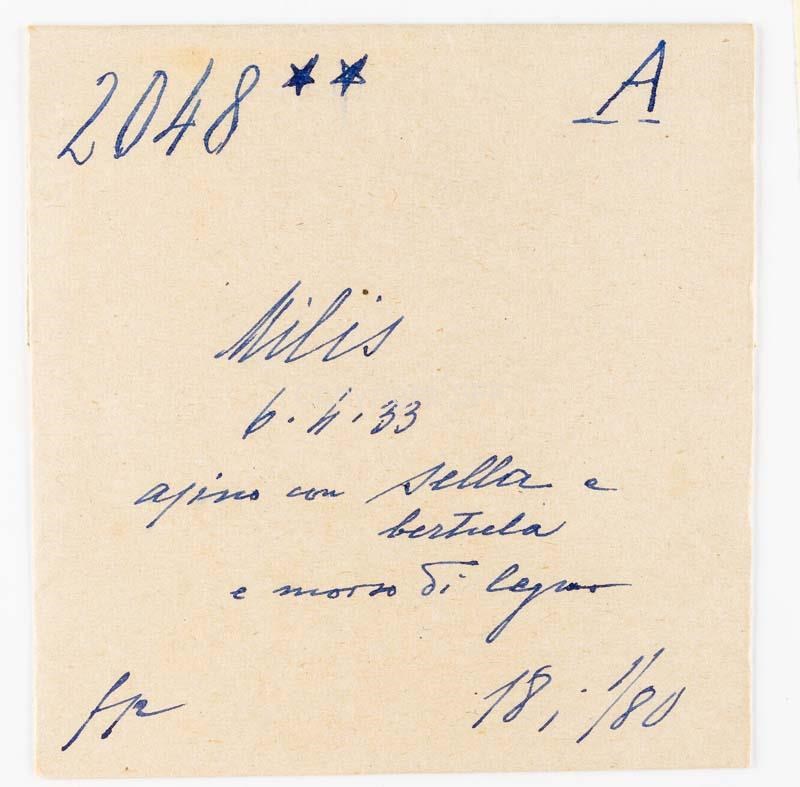 2048 ★★ A
Milis
6.4.33
asino con sella e
bertula
e morso di legno
fp 18; 1/80